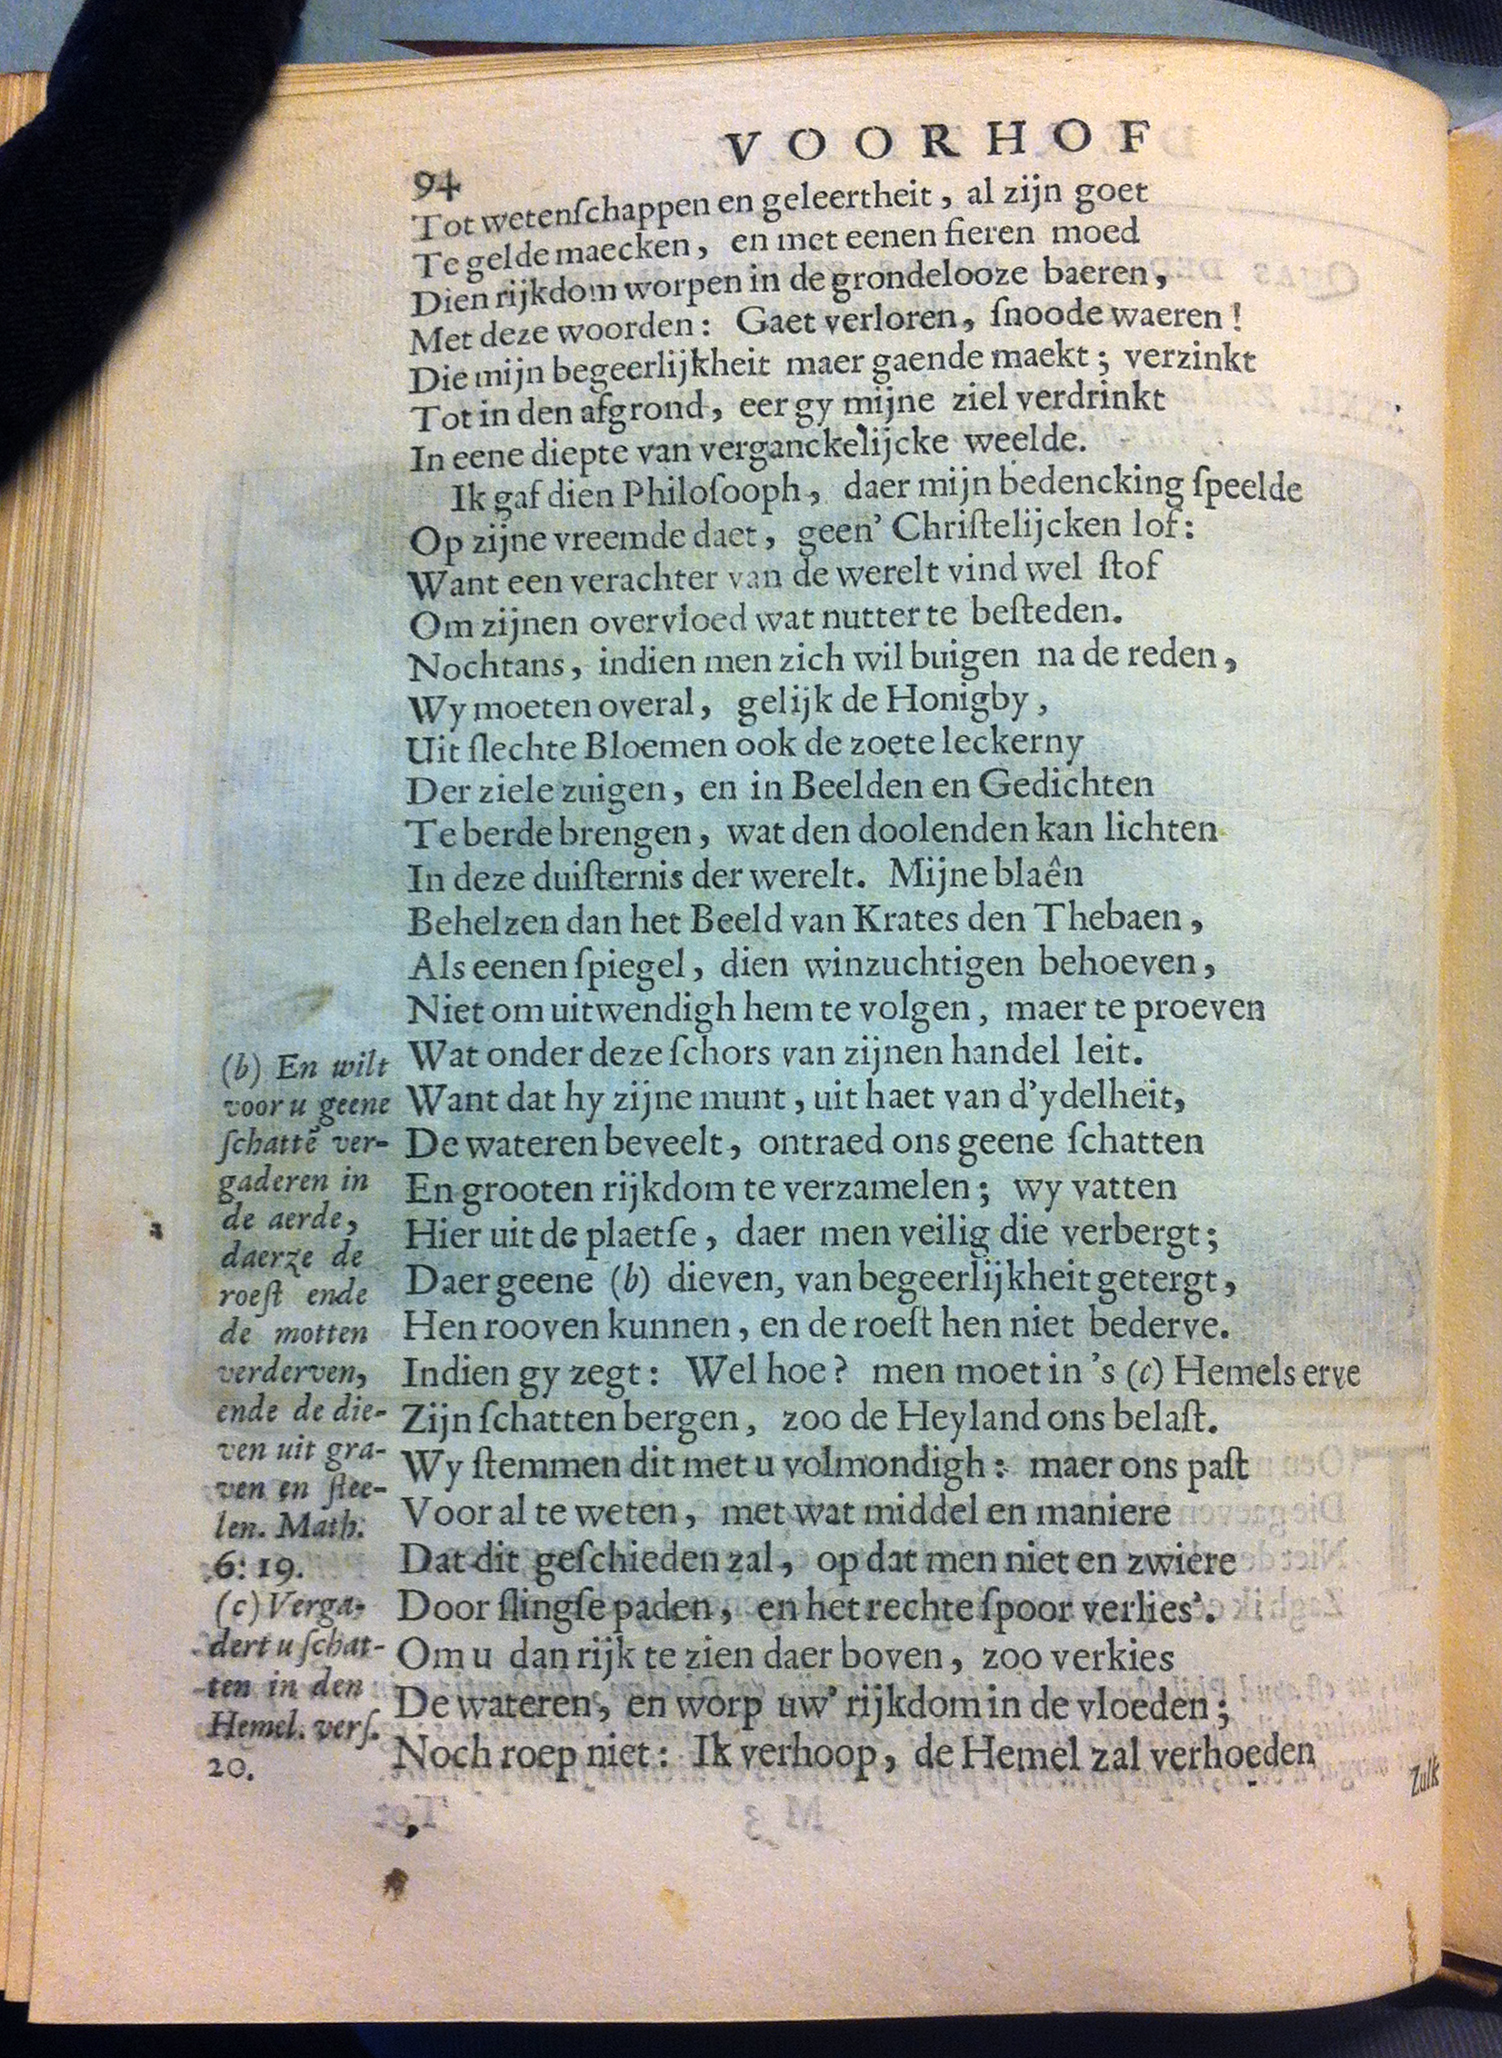 VOORHOF
94
Tot wetenſchappen en geleertheit, al zijn goet
Te gelde maecken, en met eenen fieren moed
Dien rijkdom worpen in de grondelooze baeren,
Met deze woorden: Gaet verloren, ſnoode waeren!
Die mijn begeerlijkheit maer gaende maekt; verzinkt
Tot in den afgrond, eer gy mijne ziel verdrinkt
In eene diepte van verganckelijcke weelde.
Ik gaf dien Philoſooph, daer mijn bedencking ſpeelde
Op zijne vreemde daet, geen' Chriſtelijcken lof:
Want een verachter van de werelt vind wel ſtof
Om zijnen overvloed wat nutter te beſteden.
Nochtans, indien men zich wil buigen na de reden,
Wy moeten overal, gelijk de Honigby,
Uit ſlechte Bloemen ook de zoete leckerny
Der ziele zuigen, en in Beelden en Gedichten
Te berde brengen, wat den doolenden kan lichten
In deze duiſternis der werelt. Mijne blaên
Behelzen dan het Beeld van Krates den Thebaen,
Als eenen ſpiegel, dien winzuchtigen behoeven,
Niet om uitwendigh hem te volgen, maer te proeven
Wat onder deze ſchors van zijnen handel leit.
Want dat hy zijne munt, uit haet van d'ydelheit,
De wateren beveelt, ontraed ons geene ſchatten
En grooten rijkdom te verzamelen; wy vatten
Hier uit de plaetſe, daer men veilig die verbergt;
Daer geene (b) dieven, van begeerlijkheit getergt,
Hen rooven kunnen, en de roeſt hen niet bederve.
Indien gy zegt: Wel hoe? men moet in 's (c) Hemels erve
Zijn ſchatten bergen, zoo de Heyland ons belaſt.
Wy ſtemmen dit met u volmondigh: maer ons paſt
Voor al te weten, met wat middel en maniere
Dat dit geſchieden zal, op dat men niet en zwiere
Door ſlingſe paden, en het rechte ſpoor verlies'.
Om u dan rijk te zien daer boven, zoo verkies
De wateren, en worp uw' rijkdom in de vloeden;
Noch roep niet: Ik verhoop, de Hemel zal verhoeden
Zulk
(b) En wilt
voor u geene
ſchattē ver-
gaderen in
de aerde,
daerze de
roeſt ende
de motten
verderven,
ende de die-
ven uit gra-
ven en ſtee-
len. Math.
6: 19.
(c) Verga-
dert u ſchat-
ten in den
Hemel. verſ.
20.